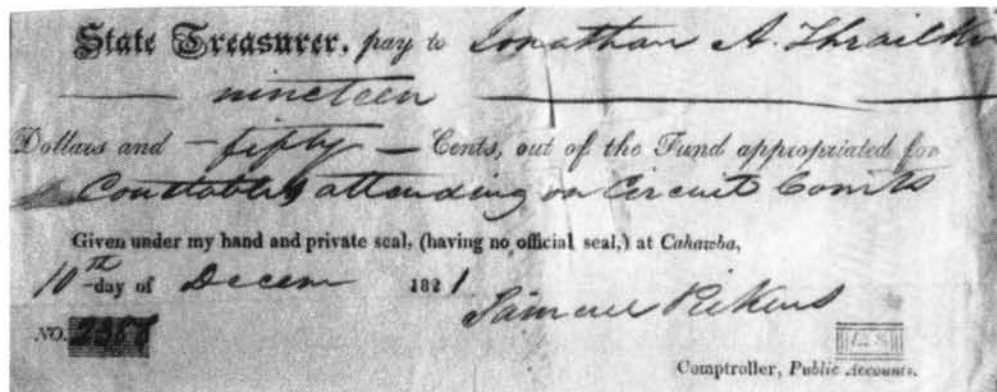 State Treasurer, pay to Jonathan A. Thrailki
nineteen
Dollars and fifty Cents, out of the Fund appropriated for
Constables attending on Circuit Courts
Given under my hand and private seal, (having no official seal,) at Cahawba,
10th day of Decem 1821
Samuel Pickens
NO.
L.S.
Comptroller, Public Accounts.